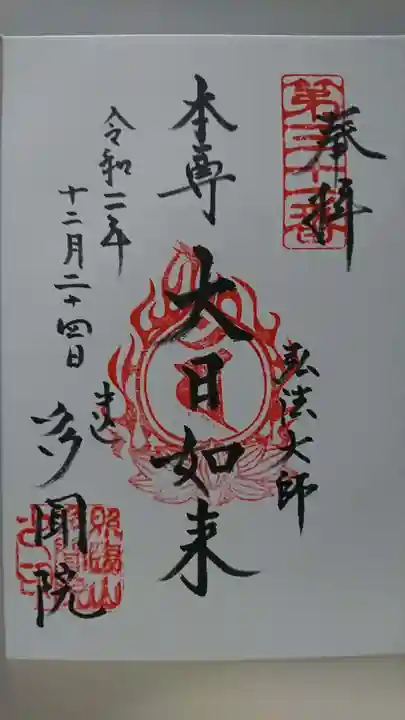 奉拝
弘法大師
本尊
大日如来
令和二年
十二月二十四日
多聞院